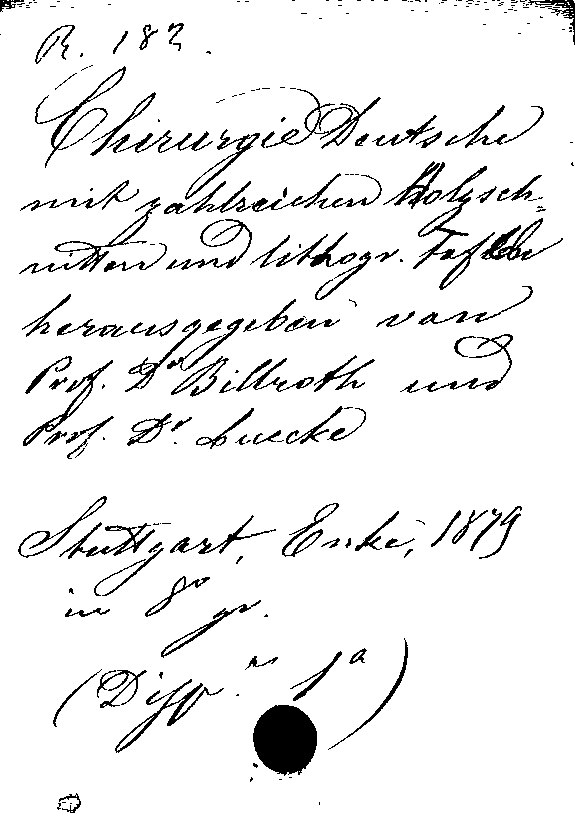 R. 182.
Chirurgie Deutsche
mit zahlreichen Holzsch-
nitten und lithogr. Tafeln
herausgegeben von
Prof. Dr Billroth und
Prof. Dr. Luecke
Stuttgart, Enke, 1879
in 8º gr.
( 1ª)